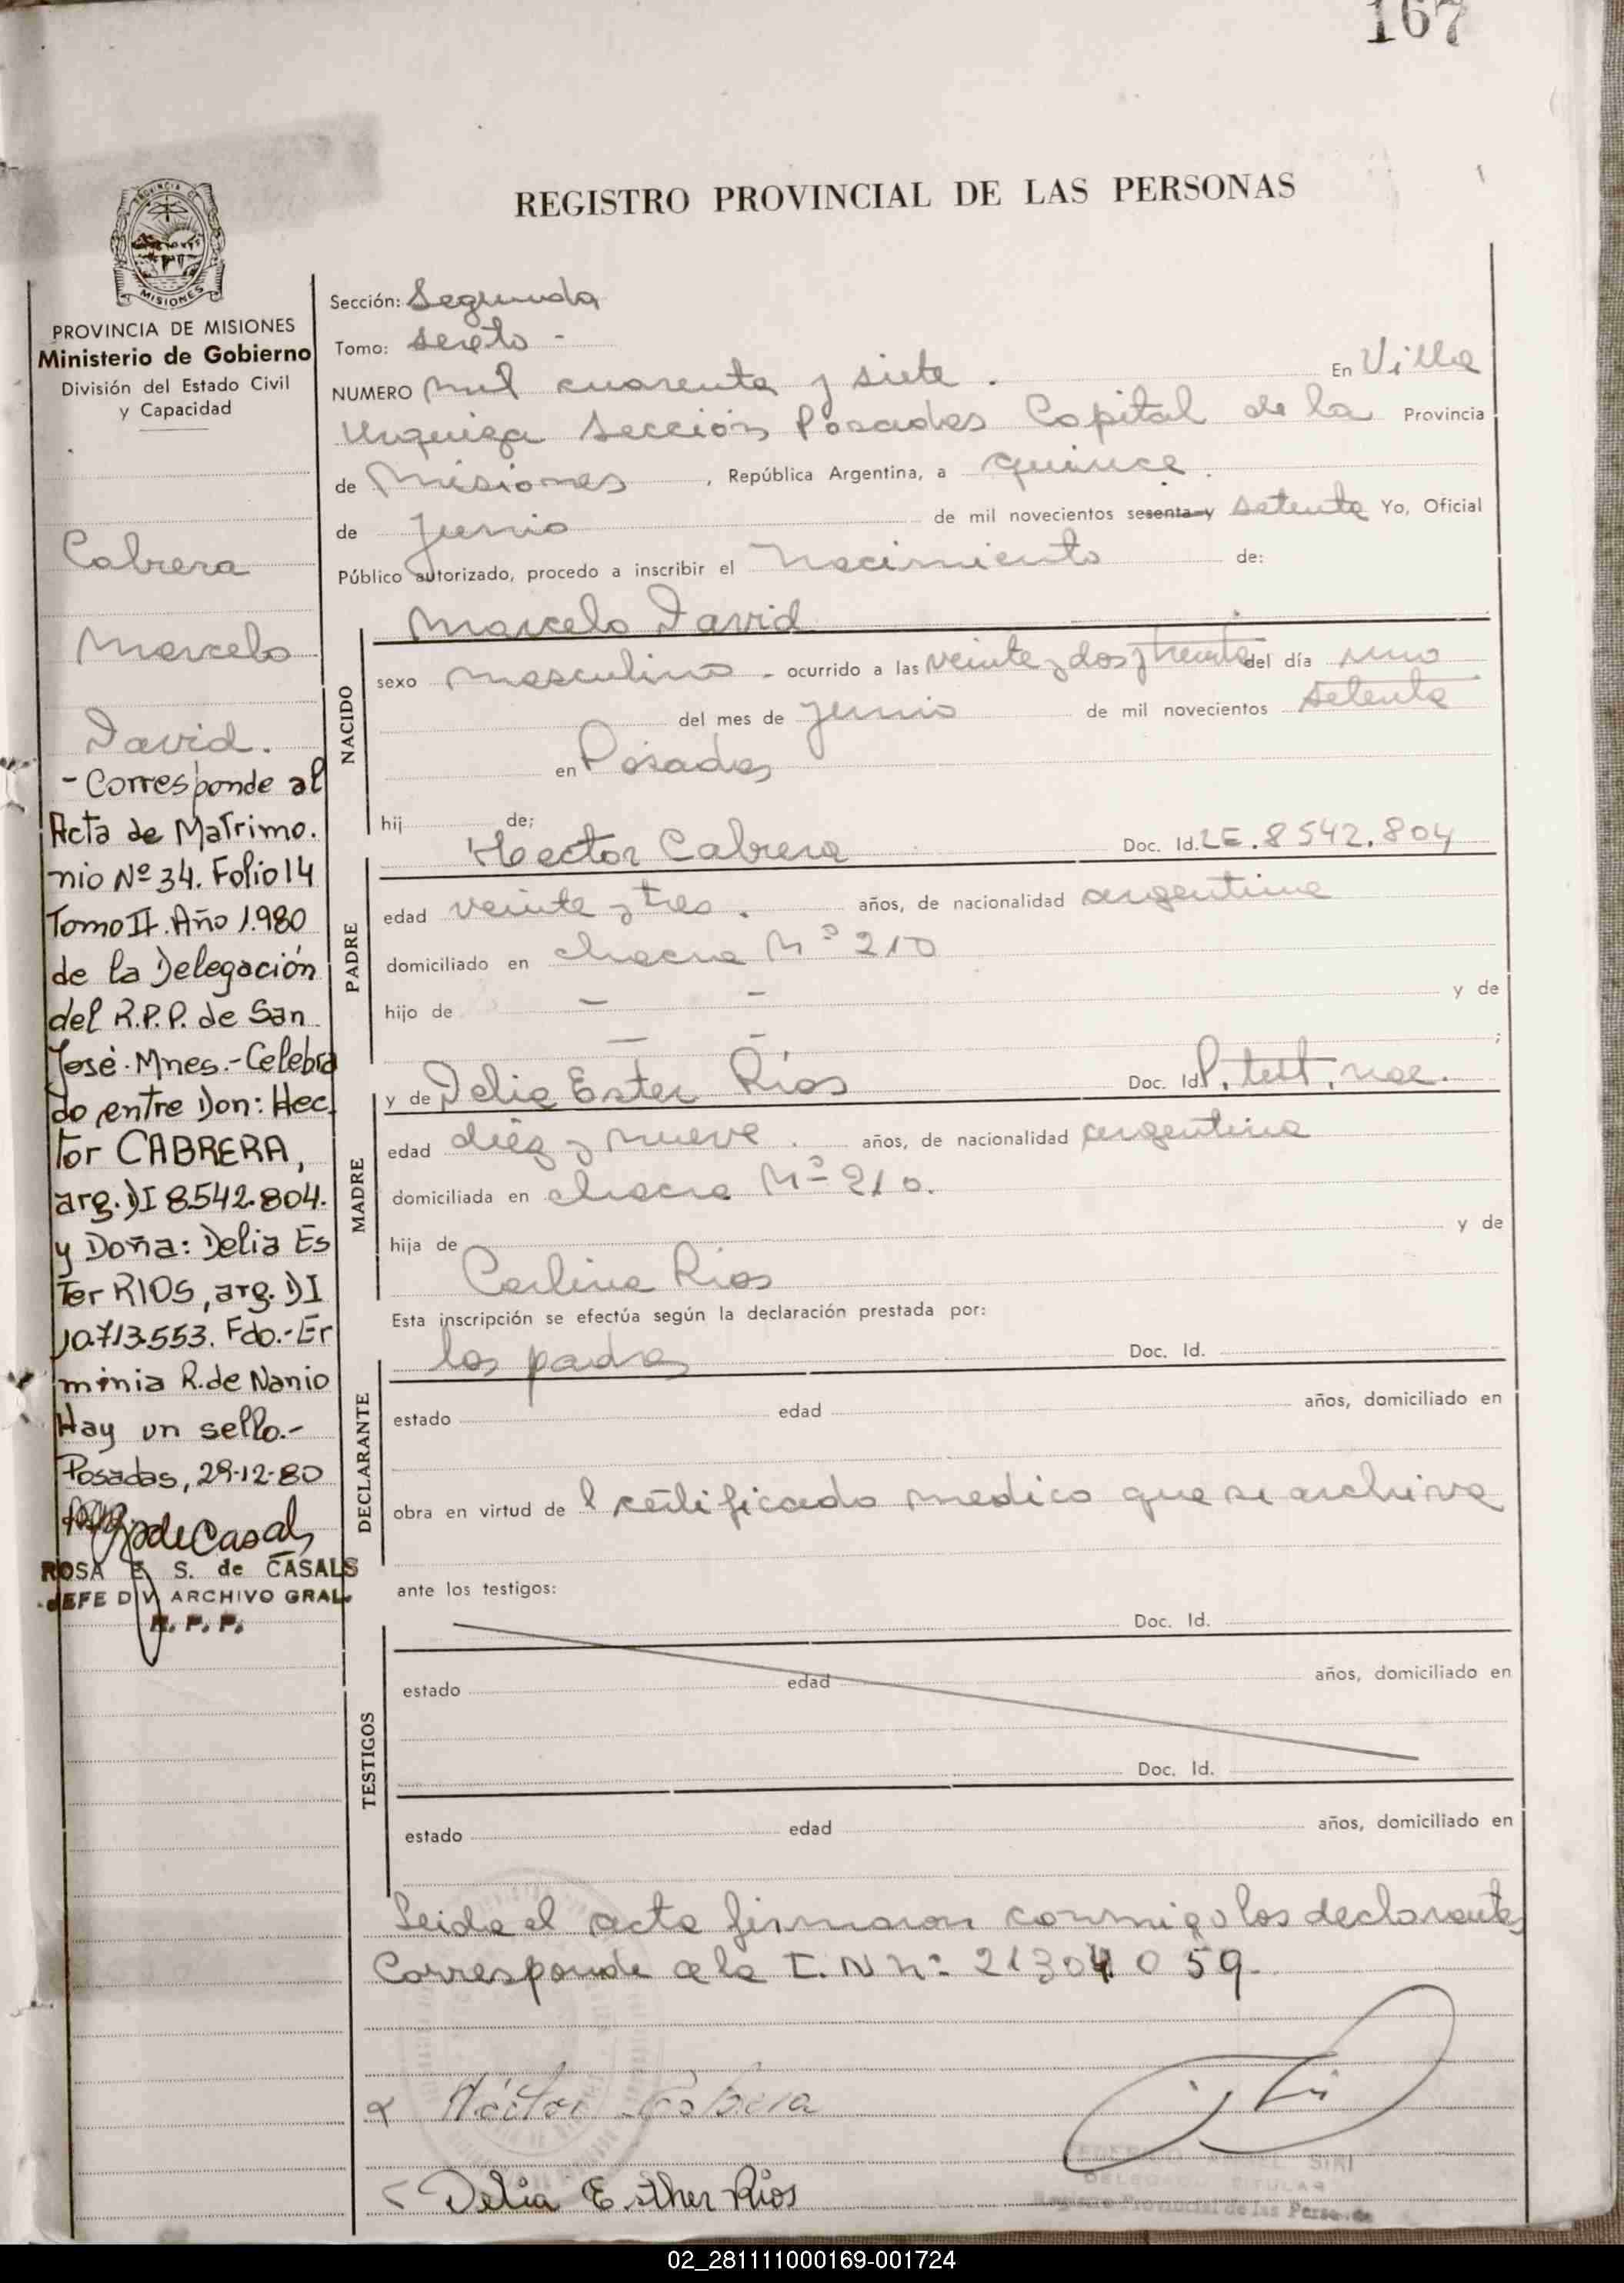 167
REGISTRO PROVINCIAL DE LAS PERSONAS
MISIONES
PROVINCIA DE MISIONES
Ministerio de Gobierno
División del Estado Civil
y Capacidad
Cabrera
Marcelo
David.
- Corresponde al
Acta de Matrimo.
nio Nº 34. Folio 14
Tomo II. Año 1.980
de la Delegación
del R.P.P. de San
José. Mnes.- Celebra
do entre Don: Hec.
Tor CABRERA,
arg. DI 8.542.804.
y Doña: Delia Es
Ter RIOS, arg. DI
10.713.553. Fdo.- Er
minia R. de Nanio
Hay un sello.-
Posadas, 29-12-80
ROSA E. S. de CASALS
JEFE DIV ARCHIVO GRAL.
R. P. P.
Sección: Segunda
Tomo: sexto -
NUMERO mil cuarenta y siete. En Villa
Urquiza Sección Posadas Capital de la Provincia
de Misiones, República Argentina, a quince.
de Junio de mil novecientos sesenta y setenta Yo, Oficial
Público autorizado, procedo a inscribir el Nacimiento de:
NACIDO
Marcelo David
sexo masculino - ocurrido a las veinte y dos y treinta del día uno
del mes de Junio de mil novecientos setenta
en Posadas
hij de:
PADRE
Hector Cabrera Doc. Id. LE. 8542.804
edad veinte y tres. años, de nacionalidad argentina
domiciliado en chacra Nº 210
hijo de — — y de
— — ;
MADRE
y de Delia Ester Ríos Doc. Id. P. test. nac.
edad diez y nueve. años, de nacionalidad argentina
domiciliada en chacra Nº 210.
hija de y de
Carlina Rios
Esta inscripción se efectúa según la declaración prestada por:
DECLARANTE
los padres Doc. Id.
estado edad años, domiciliado en
obra en virtud de l certificado medico que se archiva
ante los testigos:
TESTIGOS
Doc. Id.
estado edad años, domiciliado en
Doc. Id.
estado edad años, domiciliado en
Leida el acta firmaron conmigo los declarantes
Corresponde a la I.N nº 21304059.
Héctor Cabrera
Delia Esther Rios
SIRI
DELEGADO TITULAR
Registro Provincial de las Personas
02_281111000169-001724